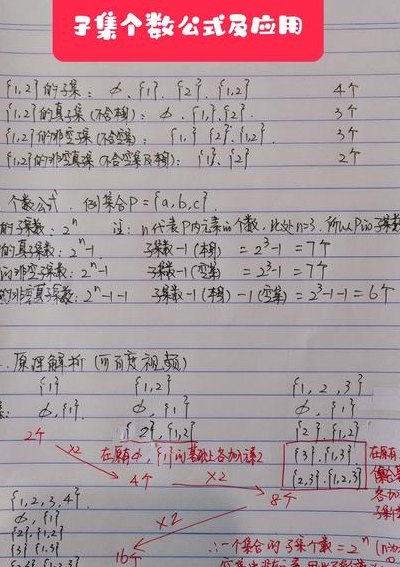 子集个数公式及应用
{1,2}的子集: ∅、{1} {2} {1,2} 4个
{1,2}的真子集(不含本身): ∅、{1}、{2} 3个
{1,2}的非空子集(不含空集): {1} {2} {1,2} 3个
{1,2}的非空真子集(不含空集及本身): {1} {2} 2个
个数公式. 例:集合P={a,b,c}
的子集数: 2ⁿ 注: n代表P内元素的个数, 此处n=3, 所以P的子集数
的真子集数: 2ⁿ-1 子集数-1(本身) =2³-1=7个
的非空子集数: 2ⁿ-1 子集数-1(空集) =2³-1=7个
的非空真子集数: 2ⁿ-1-1 子集数-1(本身)-1(空集)=2³-1-1=6个
原理解析(可百度视频)
{1} {1,2} {1,2,3}
∅,{1} ∅,{1} ∅,{1}
{2},{1,2} {2},{1,2}
2个 ×2 在原有∅,{1}的基础上各加元素2 {3},{1,3} 在原有
{2,3},{1,2,3}
4个 ×2 8个 各加
{1,2,3,4} 子集
∅,{1} ×2
{2},{1,2}
{3} {1,3} 16个 ∴一个集合的子集个数=2ⁿ
{2,3} {1,2,3}